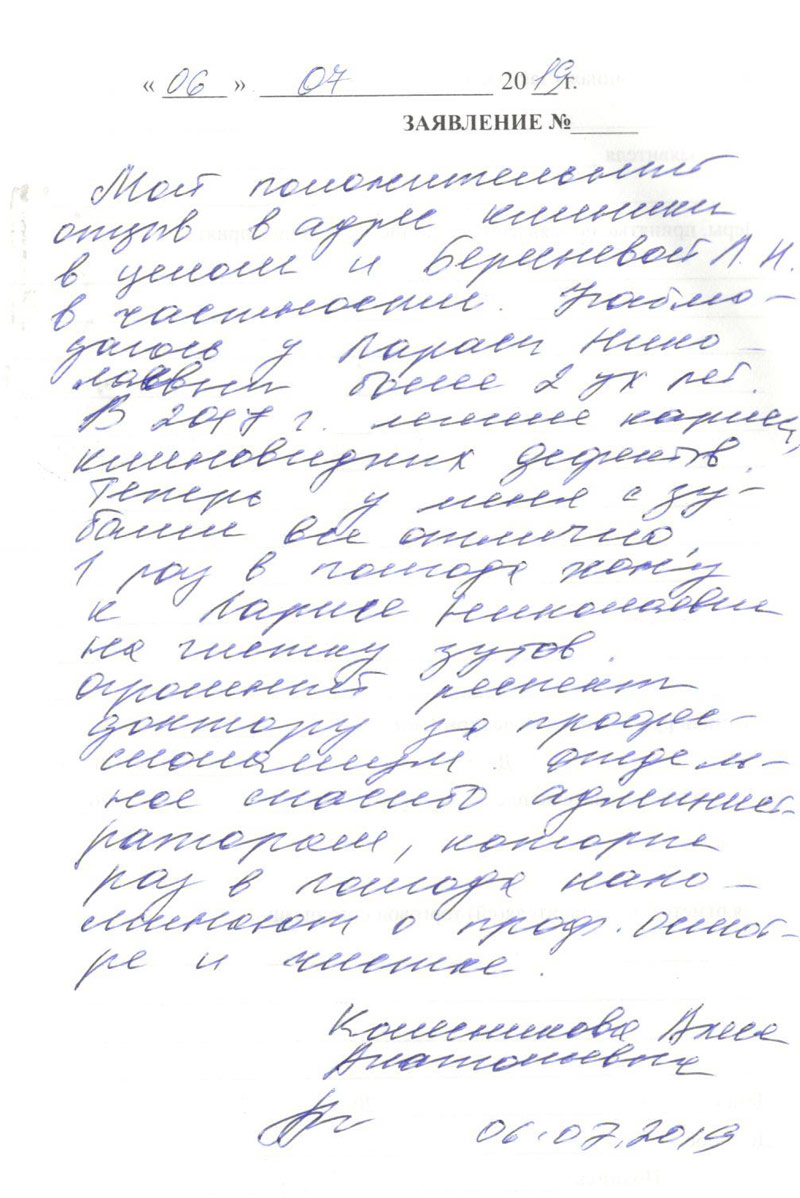 « 06 » 07 2019 г.
ЗАЯВЛЕНИЕ №
Мой положительный
отзыв в адрес клиники
в целом и Берсеневой Л. Н.
в частности. Наблю-
даюсь у Ларисы Нико-
лаевны более 2 ух лет.
В 2017 г. лечение кариеса,
клиновидных дефектов.
Теперь у меня с зу-
бами все отлично,
1 раз в полгода хожу
к Ларисе Николаевне
на чистку зубов.
Огромный респект
доктору за профес-
сионализм отдель-
ное спасибо админист-
раторам, которые
раз в полгода напо-
минают о проф. осмот-
ре и чистке.
Колесникова
Анатольевна
06.07.2019